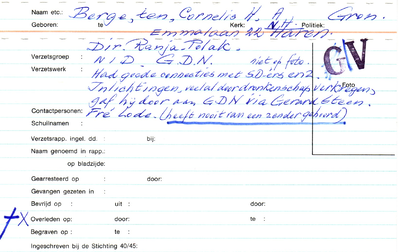 Naam etc.: Berge, ten, Cornelis H. A. Gron.
Geboren: te Kerk: N.H. Politiek:
Emmalaan 22 Haren.
Dir. Ranja-Polak.
GV
Verzetsgroep: N.I.D. G.D.N. niet op foto.
Verzetswerk: Had grode connecties met SD-ers enz.
Foto
Inlichtingen, veelal door dronkenschap verkregen,
gaf hij door aan GDN via Gerard Steen.
Contactpersonen: Fré Lode. (heeft nooit van een zender gehoord)
Schuilnamen:
Verzetsrapp. ingel. dd.: bij:
Naam genoemd in rapp.:
op bladzijde:
Gearresteerd op: door:
Gevangen gezeten in:
Bevrijd op: uit: door:
X Overleden op: door: te:
Begraven op: te:
Ingeschreven bij de Stichting 40/45: